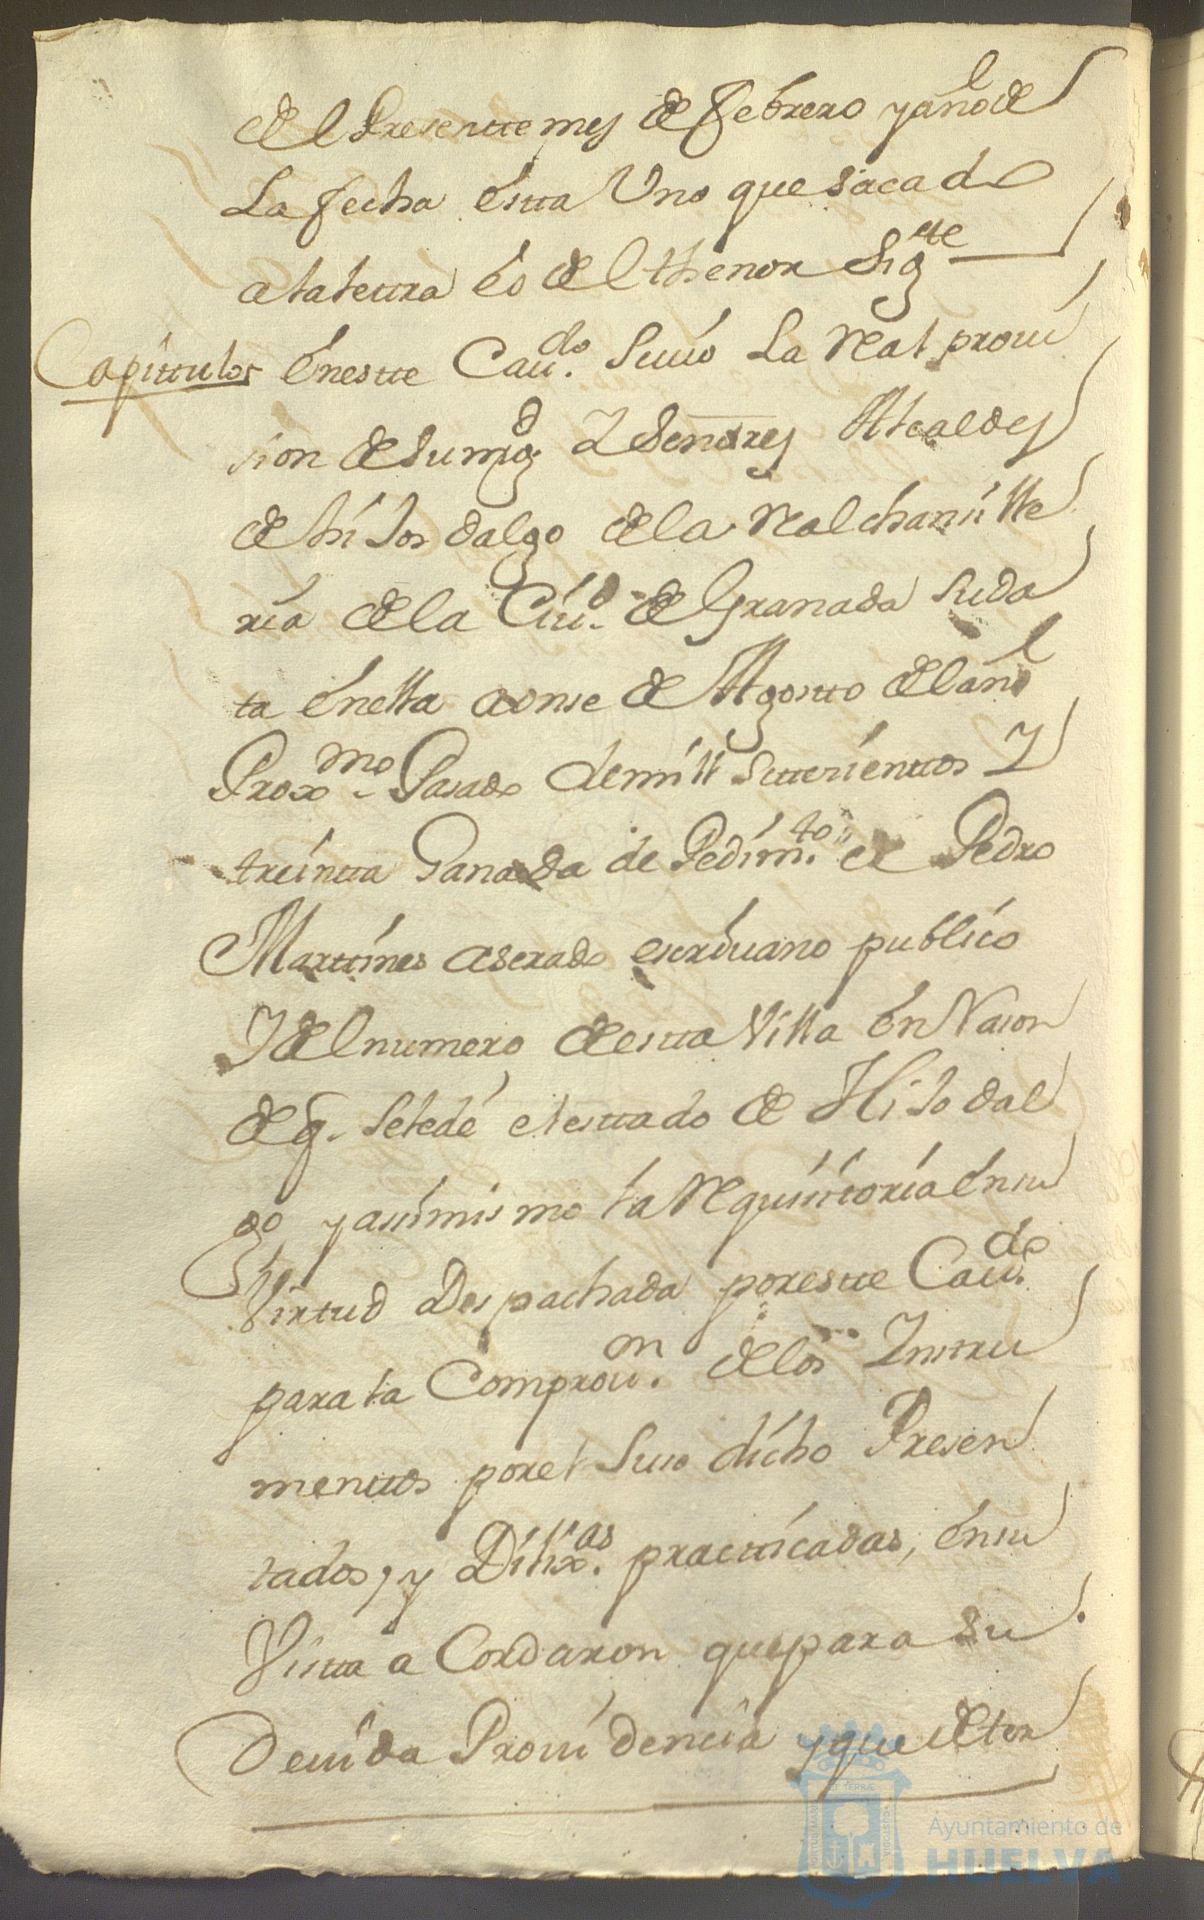 de el Presentte mes de febrero y año de
La fecha estta Uno que sacado
a la letra es de el thenor Sigtte
Capittulos En estte Caudo. Se uio La Real proui
sion de su magd. Y Señores Alcaldes
de hijos dalgo de la Real chanzille
ria de la Ciud. de Granada su da
ta en ella a onse de Agosto de el año
Proxmo. Pasado de mill settesienttos Y
treintta Ganada de Pedimto. de Pedro
Marttines escriuano publico
Y de el numero de estta Villa en Rason
de q. se le dé el estado de Hijo dal
go y asimismo la Requisitoria en su
Virtud Despachada por estte Caudo.
para la Comprouon. de los Instru
menttos por el Suso dicho Presen
tados, y Dilixas. practticadas, en su
Vistta acordaron que para su
Deuida Prouidencia y que se tor
Ayuntamiento de
HUELVA